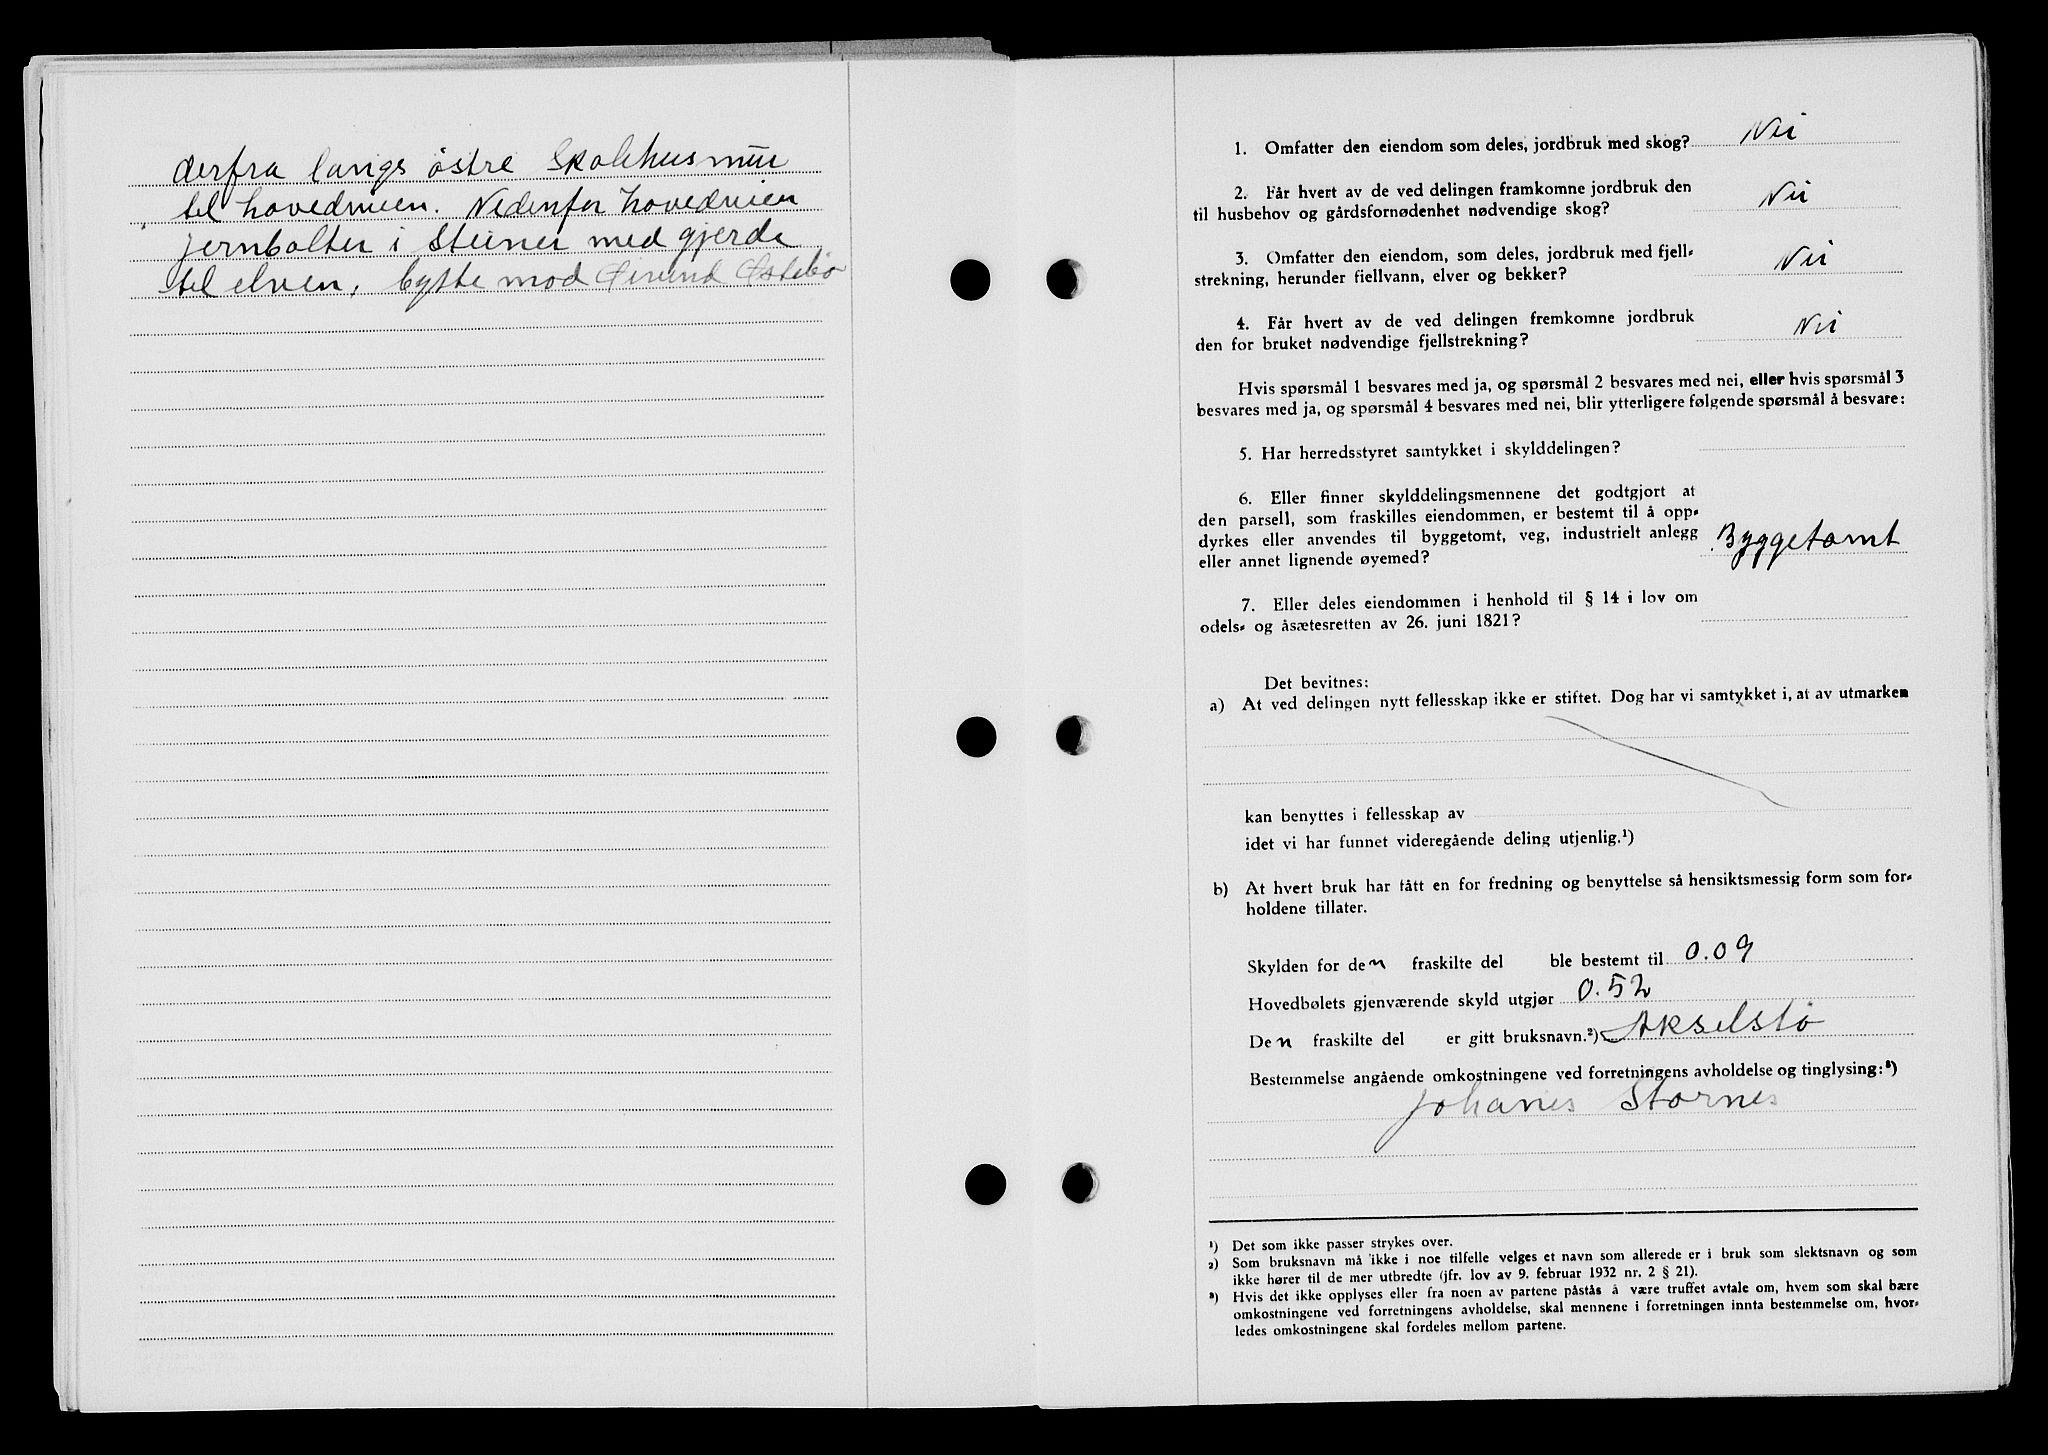 derfra langs østre Skolehusmur
til hovedveien. Nedenfor hovedveien
jernbolter i Steiner med gjerde
til elven, bytte mod Eivind Østebø
1. Omfatter den eiendom som deles, jordbruk med skog? Nei
2. Får hvert av de ved delingen framkomne jordbruk den
til husbehov og gårdsfornødenhet nødvendige skog? Nei
3. Omfatter den eiendom, som deles, jordbruk med fjell-
strekning, herunder fjellvann, elver og bekker? Nei
4. Får hvert av de ved delingen fremkomne jordbruk
den for bruket nødvendige fjellstrekning? Nei
Hvis spørsmål 1 besvares med ja, og spørsmål 2 besvares med nei, eller hvis spørsmål 3
besvares med ja, og spørsmål 4 besvares med nei, blir ytterligere følgende spørsmål å besvare:
5. Har herredsstyret samtykket i skylddelingen?
6. Eller finner skylddelingsmennene det godtgjort at
den parsell, som fraskilles eiendommen, er bestemt til å opp-
dyrkes eller anvendes til byggetomt, veg, industrielt anlegg
eller annet lignende øyemed? Byggetomt
7. Eller deles eiendommen i henhold til § 14 i lov om
odels- og åsætesretten av 26. juni 1821?
Det bevitnes:
a) At ved delingen nytt fellesskap ikke er stiftet. Dog har vi samtykket i, at av utmarken
kan benyttes i fellesskap av
idet vi har funnet videregående deling utjenlig.¹)
b) At hvert bruk har fått en for fredning og benyttelse så hensiktsmessig form som for-
holdene tillater.
Skylden for den fraskilte del ble bestemt til 0.09
Hovedbølets gjenværende skyld utgjør 0.52
Den fraskilte del er gitt bruksnavn.²) Akselstø
Bestemmelse angående omkostningene ved forretningens avholdelse og tinglysing:³)
Johanes Stornes
¹) Det som ikke passer strykes over.
²) Som bruksnavn må ikke i noe tilfelle velges et navn som allerede er i bruk som slektsnavn og som
ikke hører til de mer utbredte (jfr. lov av 9. februar 1932 nr. 2 § 21).
³) Hvis det ikke opplyses eller fra noen av partene påstås å være truffet avtale om, hvem som skal bære
omkostningene ved forretningens avholdelse, skal mennene i forretningen innta bestemmelse om, hvor-
ledes omkostningene skal fordeles mellom partene.